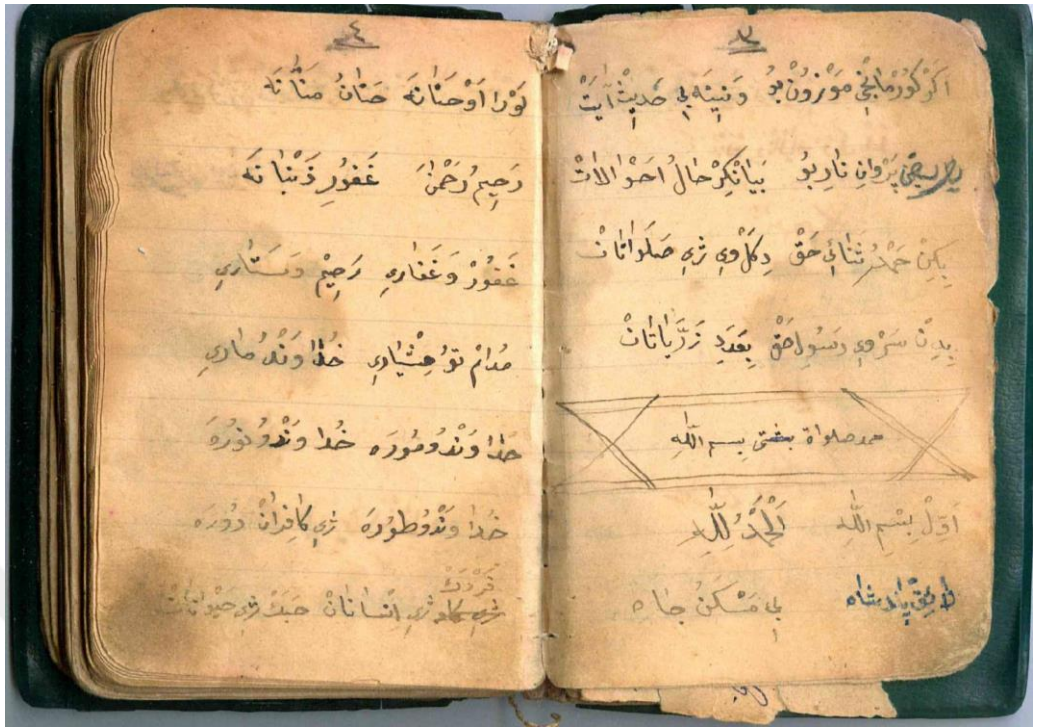 ٣
اَكَرْ كُورْمَانْجِي مَوْزُونْ بُو وَنِينَه بِي حَدِيثْ آيَتْ
پَرْوَانِ نَادِ بُو بَيَانْكِرْ حَالُ اَحْوَالَاتْ
بِكِنْ حَمْدُ ثَنَائِي حَقْ دِگَلْ وِي ژِي صَلَوَاتَانْ
بِدِنْ سَرْ وِي رَسُولِ حَقْ بِعَدَدِ ذَرَّيَاتَانْ
حمد صلواة بعضى بسم اللّٰه
اَوَّلْ بِسْمِ اللّٰهِ اَلْحَمْدُ لِلّٰهِ
لَايِقِي پَادِشَاه بِي مَسْكَنُ جَاه
٤
حَنَّانُ مَنَّانَه
رَحِيمُ رَحْمٰنَ غَفُورِ ذَنْبَانَه
غَفُورْ وَغَفَّارِي رَحِيمْ وَسَتَّارِي
مُدَامْ تُو هِشْيَارِي خُدَا وَنْدُ مَارِي
خُدَا وَنْدُ مُورَه خُدَا وَنْدُ نُورَه
خُدَا وَنْدُ طُورَه ژِي كَافِرَانْ دُورَه
كَرْ دَكْ
ژِي اِنْسَانَانْ حَبَكْ ژِي حَيْوَانَاتْ